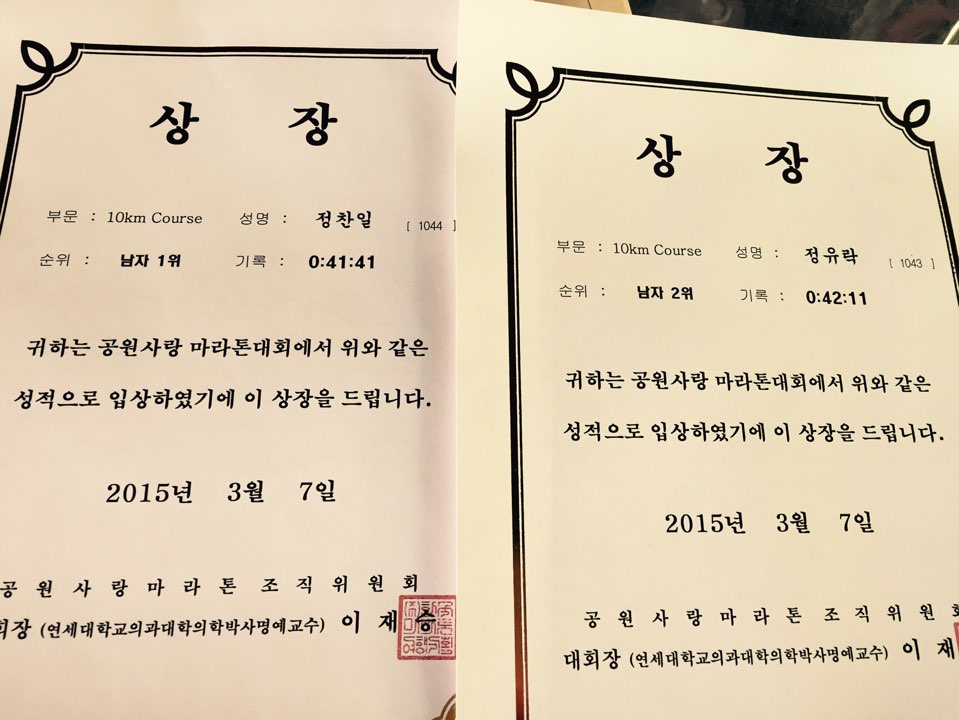 상 장
부문 : 10km Course 성명 : 정찬일 [ 1044 ]
순위 : 남자 1위 기록 : 0:41:41
귀하는 공원사랑 마라톤대회에서 위와 같은
성적으로 입상하였기에 이 상장을 드립니다.
2015년 3월 7일
공 원 사 랑 마 라 톤 조 직 위 원 회
회장 (연세대학교의과대학의학박사명예교수) 이 재 승
상 장
부문 : 10km Course 성명 : 정유락 [ 1043 ]
순위 : 남자 2위 기록 : 0:42:11
귀하는 공원사랑 마라톤대회에서 위와 같은
성적으로 입상하였기에 이 상장을 드립니다.
2015년 3월 7일
공 원 사 랑 마 라 톤 조 직 위 원 회
대회장 (연세대학교의과대학의학박사명예교수) 이 재